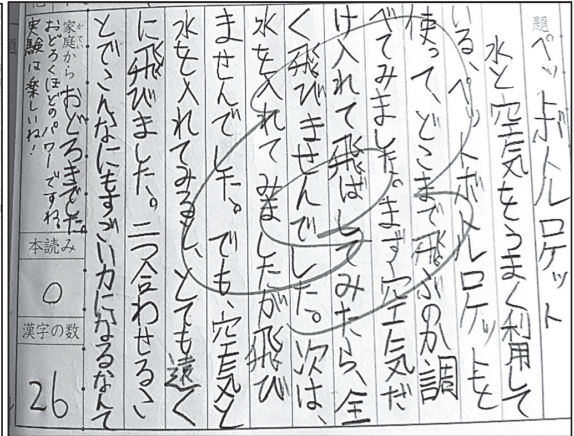 題 ペットボトルロケット
水と空気をうまく利用して
いる、ペットボトルロケットを
使って、どこまで飛ぶのか調
べてみました。まず空気だ
け入れて飛ばしてみたら、全
く飛びませんでした。次は、
水を入れてみましたが飛び
ませんでした。でも、空気と
水を入れてみると、とても遠く
に飛びました。二つ合わせるこ
とでこんなにもすごい力になるなんて
おどろきでした。
家庭から
かてい
おどろくほどのパワーですね。
実験は楽しいね！
本読み
○
漢字の数
26